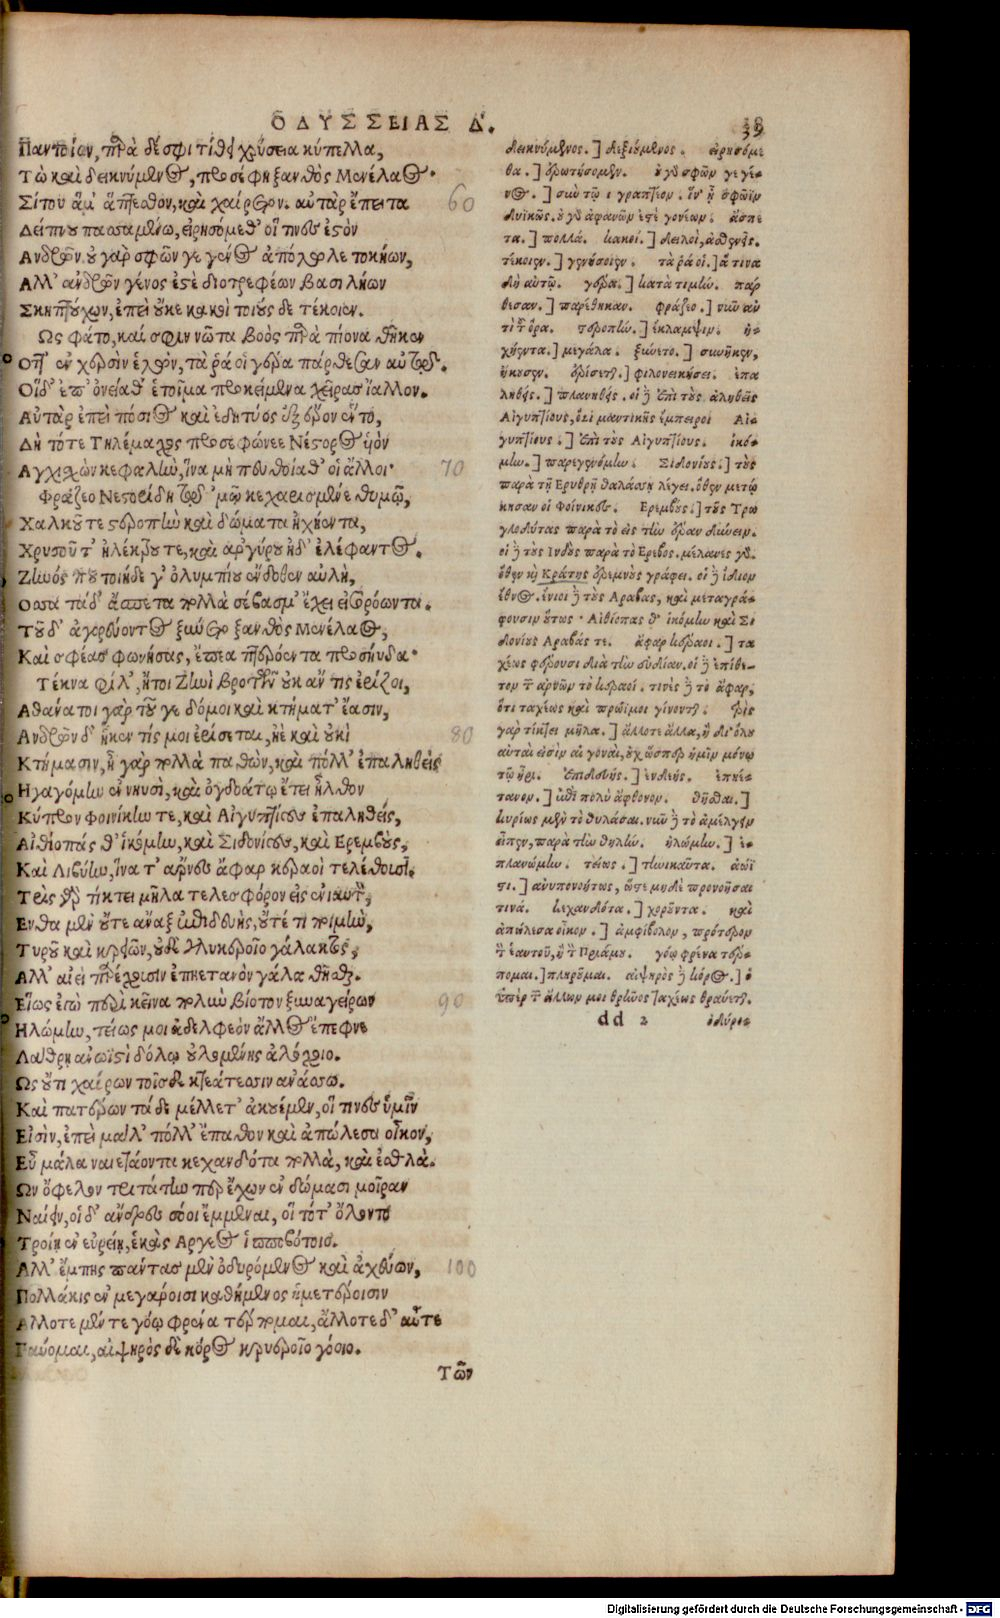 ΟΔΥΣΣΕΙΑΣ Δ.
39
Παντοίων, παρὰ δέ σφι τίθει χρύσεια κύπελλα,
Τὼ καὶ δεικνύμενος, προσέφη ξανθὸς Μενέλαος·
Σίτου θ' ἅπτεσθον, καὶ χαίρετον. αὐτὰρ ἔπειτα 60
Δείπνου πασσαμένω, εἰρησόμεθ' οἵ τινες ἐστὸν
Ανδρῶν. οὐ γὰρ σφῶν γε γένος ἀπόλωλε τοκήων,
Αλλ' ἀνδρῶν γένος ἐστὲ διοτρεφέων βασιλήων
Σκηπτούχων, ἐπεὶ οὔκε κακοὶ τοιούς δε τέκοιεν.
Ως φάτο, καί σφιν νῶτα βοὸς παρὰ πίονα θῆκεν
Οπτ' ἐν χερσὶν ἑλὼν, τὰ ῥά οἱ γέρα πάρθεσαν αὐτῷ.
Οἱ δ' ἐπ' ὀνείαθ' ἑτοῖμα προκείμενα χεῖρας ἴαλλον.
Αὐτὰρ ἐπεὶ πόσιος καὶ ἐδητύος ἐξ ἔρον ἕντο,
Δὴ τότε Τηλέμαχος προσεφώνεε Νέστορος υἱὸν
Αγχι σχὼν κεφαλὴν, ἵνα μὴ πευθοίαθ' οἱ ἄλλοι· 70
Φράζεο Νεστορίδη τῷ 'μῷ κεχαρισμένε θυμῷ,
Χαλκοῦ τε στεροπὴν καὶ δώματα ἠχήεντα,
Χρυσοῦ τ' ἠλέκτρου τε, καὶ ἀργύρου ἠδ' ἐλέφαντος.
Ζηνός που τοιήδε γ' ὀλυμπίου ἔνδοθεν αὐλὴ,
Οσσα τάδ' ἄσπετα πολλὰ σέβας μ' ἔχει εἰσορόωντα.
Τοῦ δ' ἀγορεύοντος ξύνετο ξανθὸς Μενέλαος,
Καὶ σφέας φωνήσας, ἔπεα πτερόεντα προσηύδα·
Τέκνα φίλ', ἤτοι Ζηνὶ βροτῶν οὐκ ἄν τις ἐρίζοι,
Αθάνατοι γὰρ τοῦ γε δόμοι καὶ κτήματ' ἔασιν,
Ανδρῶν δ' ἤ κεν τίς μοι ἐρίσεται, ἠὲ καὶ οὐκὶ 80
Κτήμασιν, ἦ γὰρ πολλὰ παθὼν, καὶ πόλλ' ἐπαληθεὶς
Ηγαγόμην ἐν νηυσὶ, καὶ ὀγδοάτῳ ἔτει ἦλθον
Κύπρον φοινίκην τε, καὶ Αἰγυπτίους ἐπαληθείς,
Αἰθίοπάς θ' ἱκόμην, καὶ Σιδονίους, καὶ Ερεμβούς,
Καὶ Λιβύην, ἵνα τ' ἄρνες ἄφαρ κεραοὶ τελέθουσι.
Τρὶς γὰρ τίκτει μῆλα τελεσφόρον εἰς ἐνιαυτὸν,
Ενθα μὲν οὔτε ἄναξ ἐπιδευὴς, οὔτέ τι ποιμὴν,
Τυροῦ καὶ κρεῶν, οὐδὲ γλυκεροῖο γάλακτος,
Αλλ' αἰεὶ παρέχουσιν ἐπηετανὸν γάλα θῆσθαι.
Εἵως ἐγὼ περὶ κεῖνα πολὺν βίοτον ξυναγείρων 90
Ηλώμην, τείως μοι ἀδελφεὸν ἄλλος ἔπεφνε
Λάθρη ἀνωϊστὶ δόλῳ οὐλομένης ἀλόχοιο.
Ως οὔτι χαίρων τοῖσδε κτεάτεσσιν ἀνάσσω.
Καὶ πατέρων τάδε μέλλετ' ἀκουέμεν, οἵ τινες ὑμῖν
Εἰσὶν, ἐπεὶ μάλ' πόλλ' ἔπαθον καὶ ἀπώλεσα οἶκον,
Εὖ μάλα ναιετάοντα κεχανδότα πολλὰ, καὶ ἐσθλά.
Ων ὄφελον τριτάτην περ ἔχων ἐν δώμασι μοῖραν
Ναίειν, οἱ δ' ἄνδρες σόοι ἔμμεναι, οἳ τότ' ὄλοντο
Τροίῃ ἐν εὐρείῃ, ἑκὰς Αργεος ἱπποβότοιο.
Αλλ' ἔμπης πάντας μὲν ὀδυρόμενος καὶ ἀχεύων, 100
Πολλάκις ἐν μεγάροισι καθήμενος ἡμετέροισιν
Αλλοτε μέν τε γόῳ φρένα τέρπομαι, ἄλλοτε δ' αὖτε
Παύομαι, αἰψηρὸς δὲ κόρος κρυεροῖο γόοιο.
Τῶν
δεικνύμενος.] δεξιούμενος. εἰρησόμε
θα.] ἐρωτήσομεν. οὐ γὰρ σφῶν γε γέ-
νος.] σὺν τῷ ι γραπτέον. ἵν' ᾖ σφῶϊν
δυϊκῶς. οὐ γὰρ ἀφανῶν ἐστὲ γονέων. ἄσπε
τα.] πολλά. κακοί.] δειλοὶ, ἀσθενεῖς.
τέκοιεν.] γεννήσοιεν. τὰ ῥά οἱ.] ἅ τινα
δὴ αὐτῷ. γέρα.] κατὰ τιμὴν. παρ
θεσαν.] παρέθηκαν. φράζεο.] νῦν ἀν
τὶ τοῦ ὅρα. στεροπὴν.] ἔκλαμψιν. ἠ-
χήεντα.] μεγάλα. ξύνετο.] συνῆκεν,
ἤκουσεν. ἐρίσεται.] φιλονεικήσει. ἐπα
ληθείς.] πλανηθείς. οἱ δὲ ἐπὶ τοὺς ἀληθεῖς
Αἰγυπτίους, ὅτι μαντικῆς ἔμπειροι Αἰ-
γυπτίους.] ἐπὶ τοὺς Αἰγυπτίους. ἱκό-
μην.] παρεγενόμην. Σιδονίους.] τοὺς
παρὰ τῇ Ερυθρῇ θαλάσσῃ λέγει. ὅθεν μετῴ
κησαν οἱ Φοίνικες. Ερεμβούς.] τοὺς Τρω
γλοδύτας παρὰ τὸ εἰς τὴν ἔραν δύνειν.
οἱ δὲ τοὺς Ινδοὺς παρὰ τὸ Ερεβος. μέλανες γάρ.
ὅθεν καὶ Κράτης ἐρεμνοὺς γράφει. οἱ δὲ ἴδιον
ἔθνος. ἔνιοι δὲ τοὺς Αραβας, καὶ μεταγρά-
φουσιν οὕτως· Αἰθίοπας θ' ἱκόμην καὶ Σι
δονίους Αραβάς τε. ἄφαρ κεραοί.] τα
χέως φέρουσι διὰ τὴν εὐδίαν. οἱ δὲ ἐπίθε-
τον τῶν ἀρνῶν τὸ κεραοί. τινὲς δὲ τὸ ἄφαρ,
ὅτι ταχέως καὶ πρώϊμοι γίνονται. τρὶς
γὰρ τίκτει μῆλα.] ἄλλοτε ἄλλα, ἢ δι' ὅλου
αὐταὶ εἰσὶν αἱ γοναὶ, οὐχ ὥσπερ ἡμῖν μόνῳ
τῷ ἦρι. ἐπιδευής.] ἐνδεής. ἐπηε-
τανόν.] ἐπὶ πολὺ ἄφθονον. θῆσθαι.]
κυρίως μὲν τὸ θηλάσαι. νῦν δὲ τὸ ἀμέλγειν
εἶπεν, παρὰ τὴν θηλήν. ἠλώμην.] ἐ-
πλανώμην. τείως.] τηνικαῦτα. ἀωϊ
στι.] ἀνυπονοήτως, ὥστε μηδὲ προνοῆσαι
τινά. κεχανδότα.] χωροῦντα. καὶ
ἀπώλεσα οἶκον.] ἀμφίβολον, πρότερον
τὸν ἑαυτοῦ, ἢ τὸν Πριάμου. γόῳ φρένα τέρ-
πομαι.] πληροῦμαι. αἰψηρὸς δὲ κόρος.] ὁ
ὑπὲρ τῶν ἄλλων μοι θρῆνος ταχέως θραύεται.
dd 2 ὀδύρο-
Digitalisierung gefördert durch die Deutsche Forschungsgemeinschaft - DFG